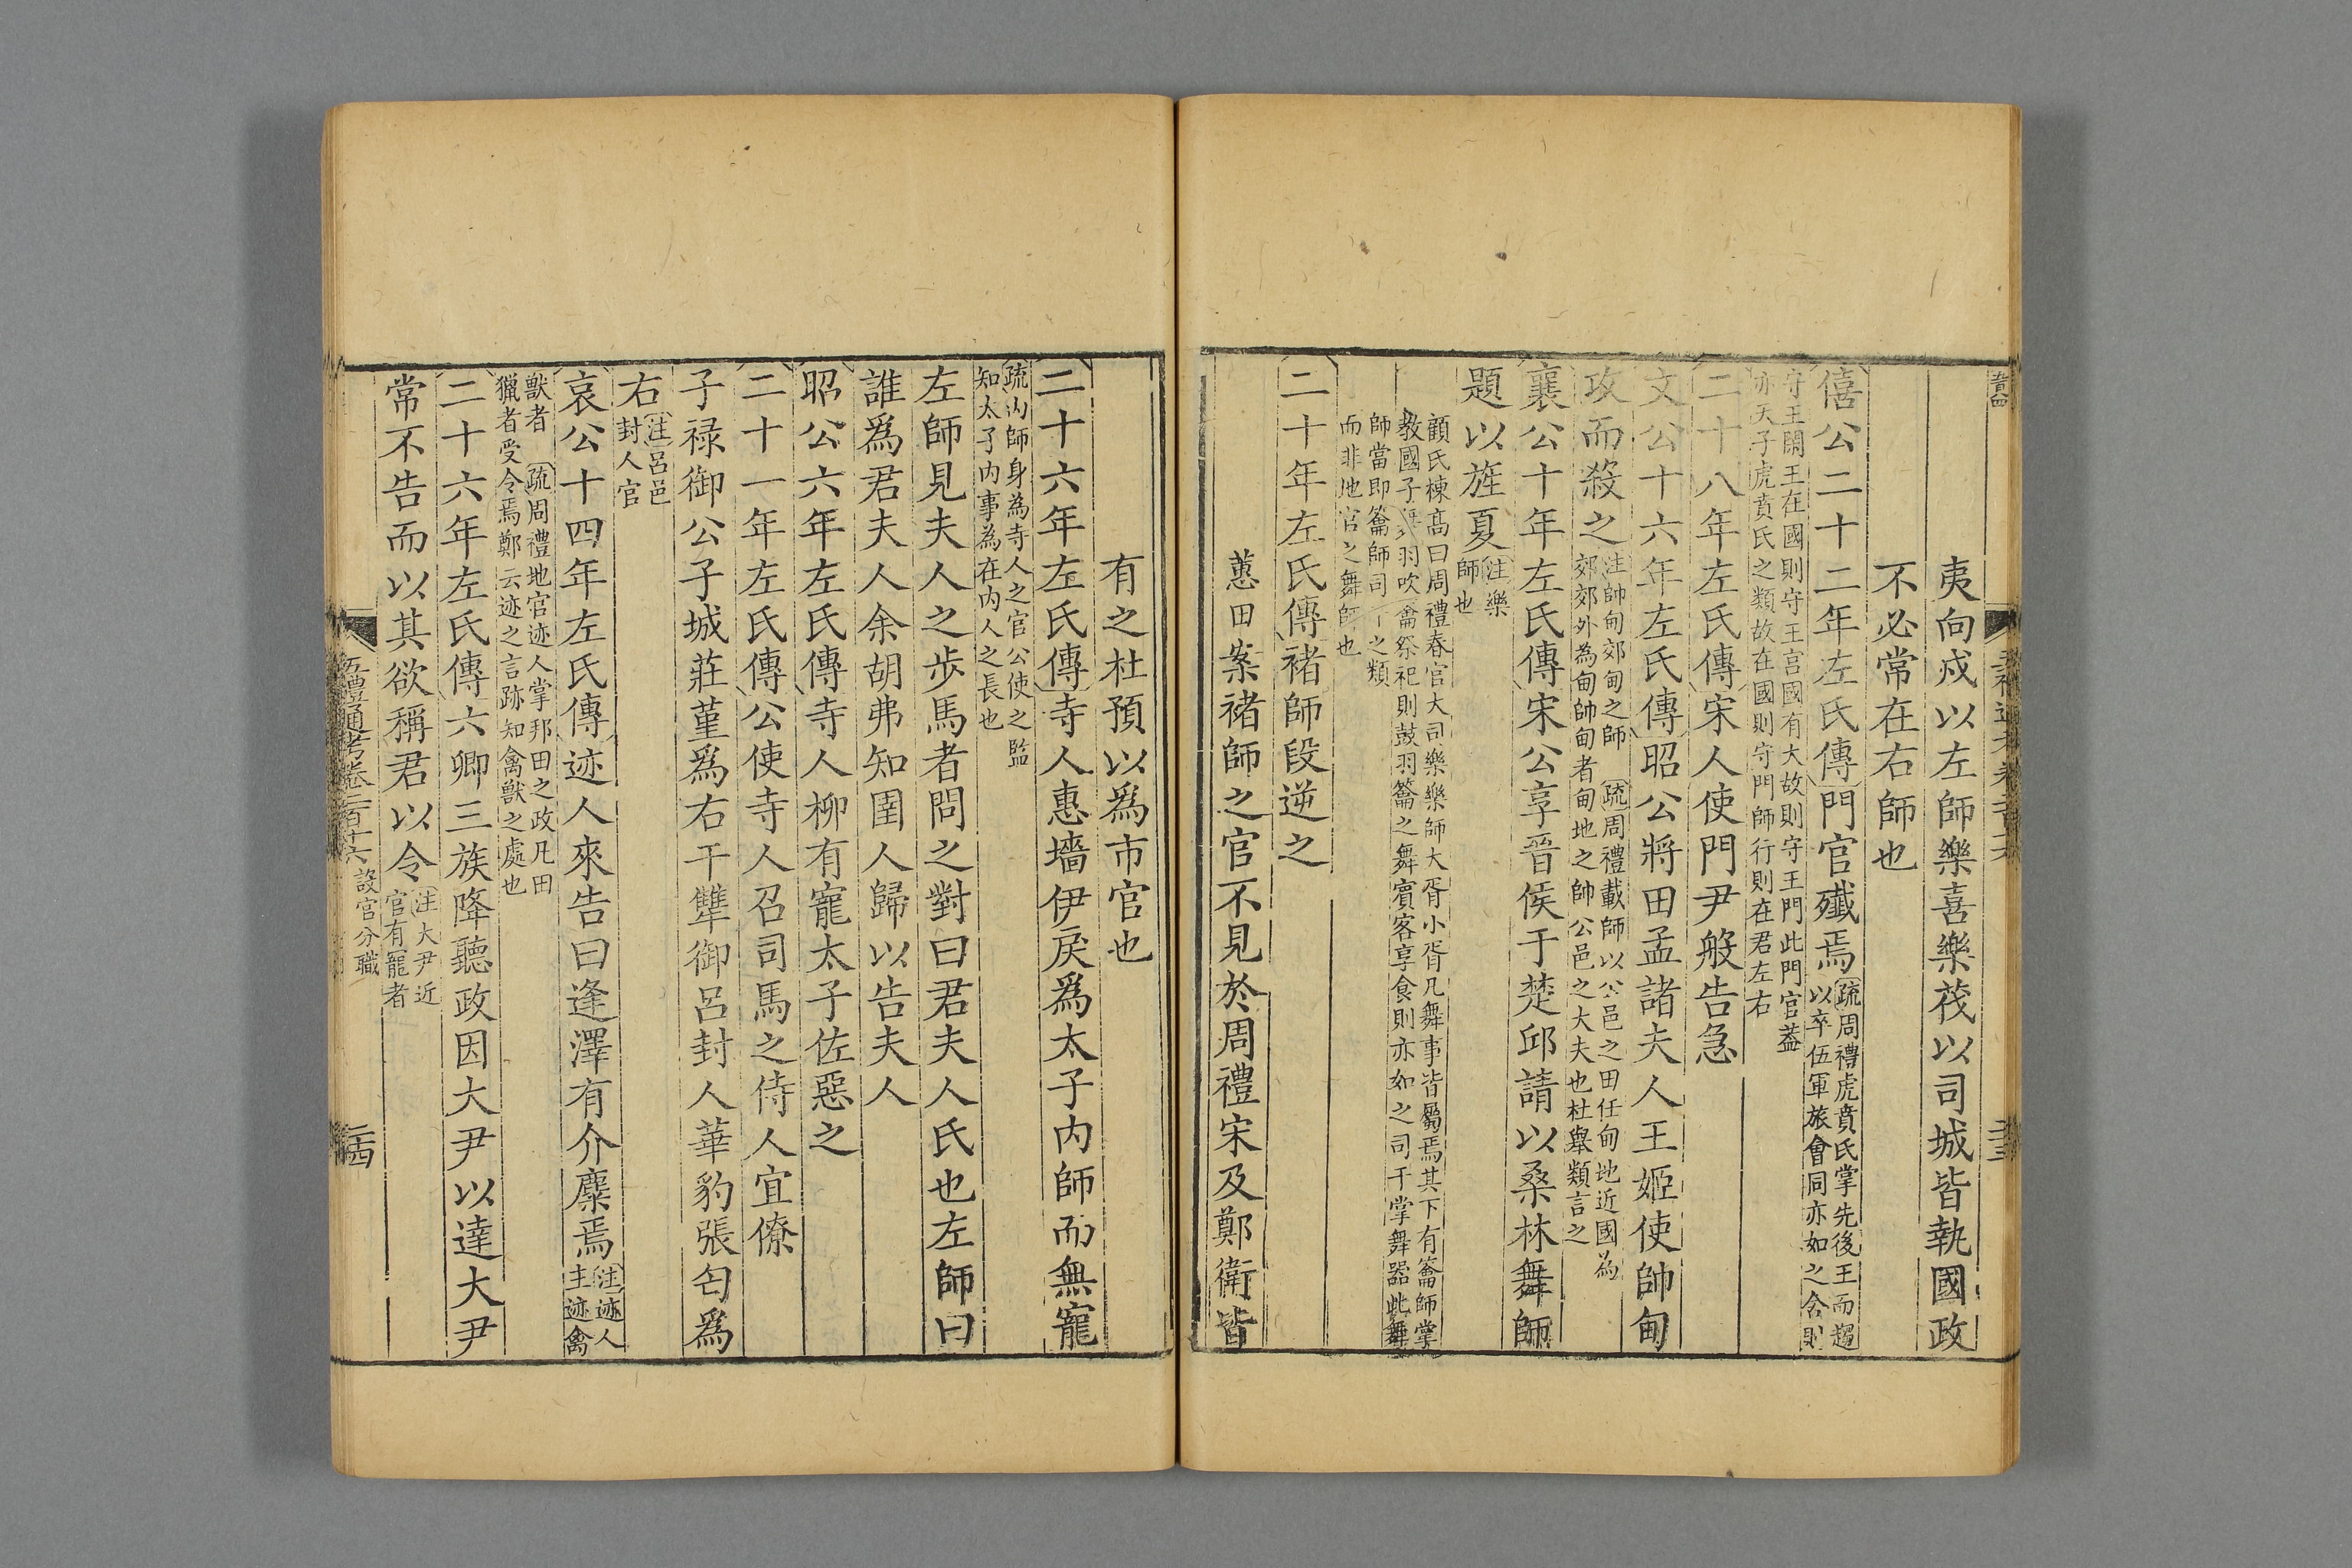 夷向戍以左師樂喜樂筏以司城皆執國政
不必常在右師也
僖公二十二年左氏傳門官殲焉疏周禮虎賁氏掌先後王而趨
以卒伍軍旅會同亦如之舍則
守王閑王在國則守王宮國有大故則守王門此門官蓋
亦天子虎賁氏之類故在國則守門師行則在君左右
二十八年左氏傳宋人使門尹般告急
文公十六年左氏傳昭公將田孟諸夫人王姬使帥甸
攻而殺之注帥甸郊甸之師 疏周禮載師以公邑之田任甸地近國為
郊郊外為甸帥甸者甸地之帥公邑之大夫也杜舉類言之
襄公十年左氏傳宋公享晉侯于楚邱請以桑林舞師
題以旌夏注樂
師也
顧氏棟高曰周禮春官大司樂樂師大胥小胥凡舞事皆屬焉其下有籥師掌
教國子舞羽吹籥祭祀則鼓羽籥之舞賓客享食則亦如之司干掌舞器此舞
師當即籥師司干之類
而非地官之舞師也
二十年左氏傳褚師段逆之
蕙田案褚師之官不見於周禮宋及鄭衛皆
有之杜預以爲市官也
二十六年左氏傳寺人惠墻伊戾爲太子内師而無寵
疏内師身為寺人之官公使之監
知太子内事為在内人之長也
左師見夫人之步馬者問之對曰君夫人氏也左師曰
誰爲君夫人余胡弗知圉人歸以告夫人
昭公六年左氏傳寺人柳有寵太子佐惡之
二十一年左氏傳公使寺人召司馬之侍人宜僚
子禄御公子城莊堇爲右干犨御呂封人華豹張匄爲
右注呂邑
封人官
哀公十四年左氏傳迹人來告曰逢澤有介麇焉注迹人
主迹禽
獸者 疏周禮地官迹人掌邦田之政凡田
獵者受令焉鄭云迹之言跡知禽獸之處也
二十六年左氏傳六卿三族降聽政因大尹以達大尹
常不告而以其欲稱君以令注大尹近
官有寵者
五禮通考卷二百十六 設官分職
二十四